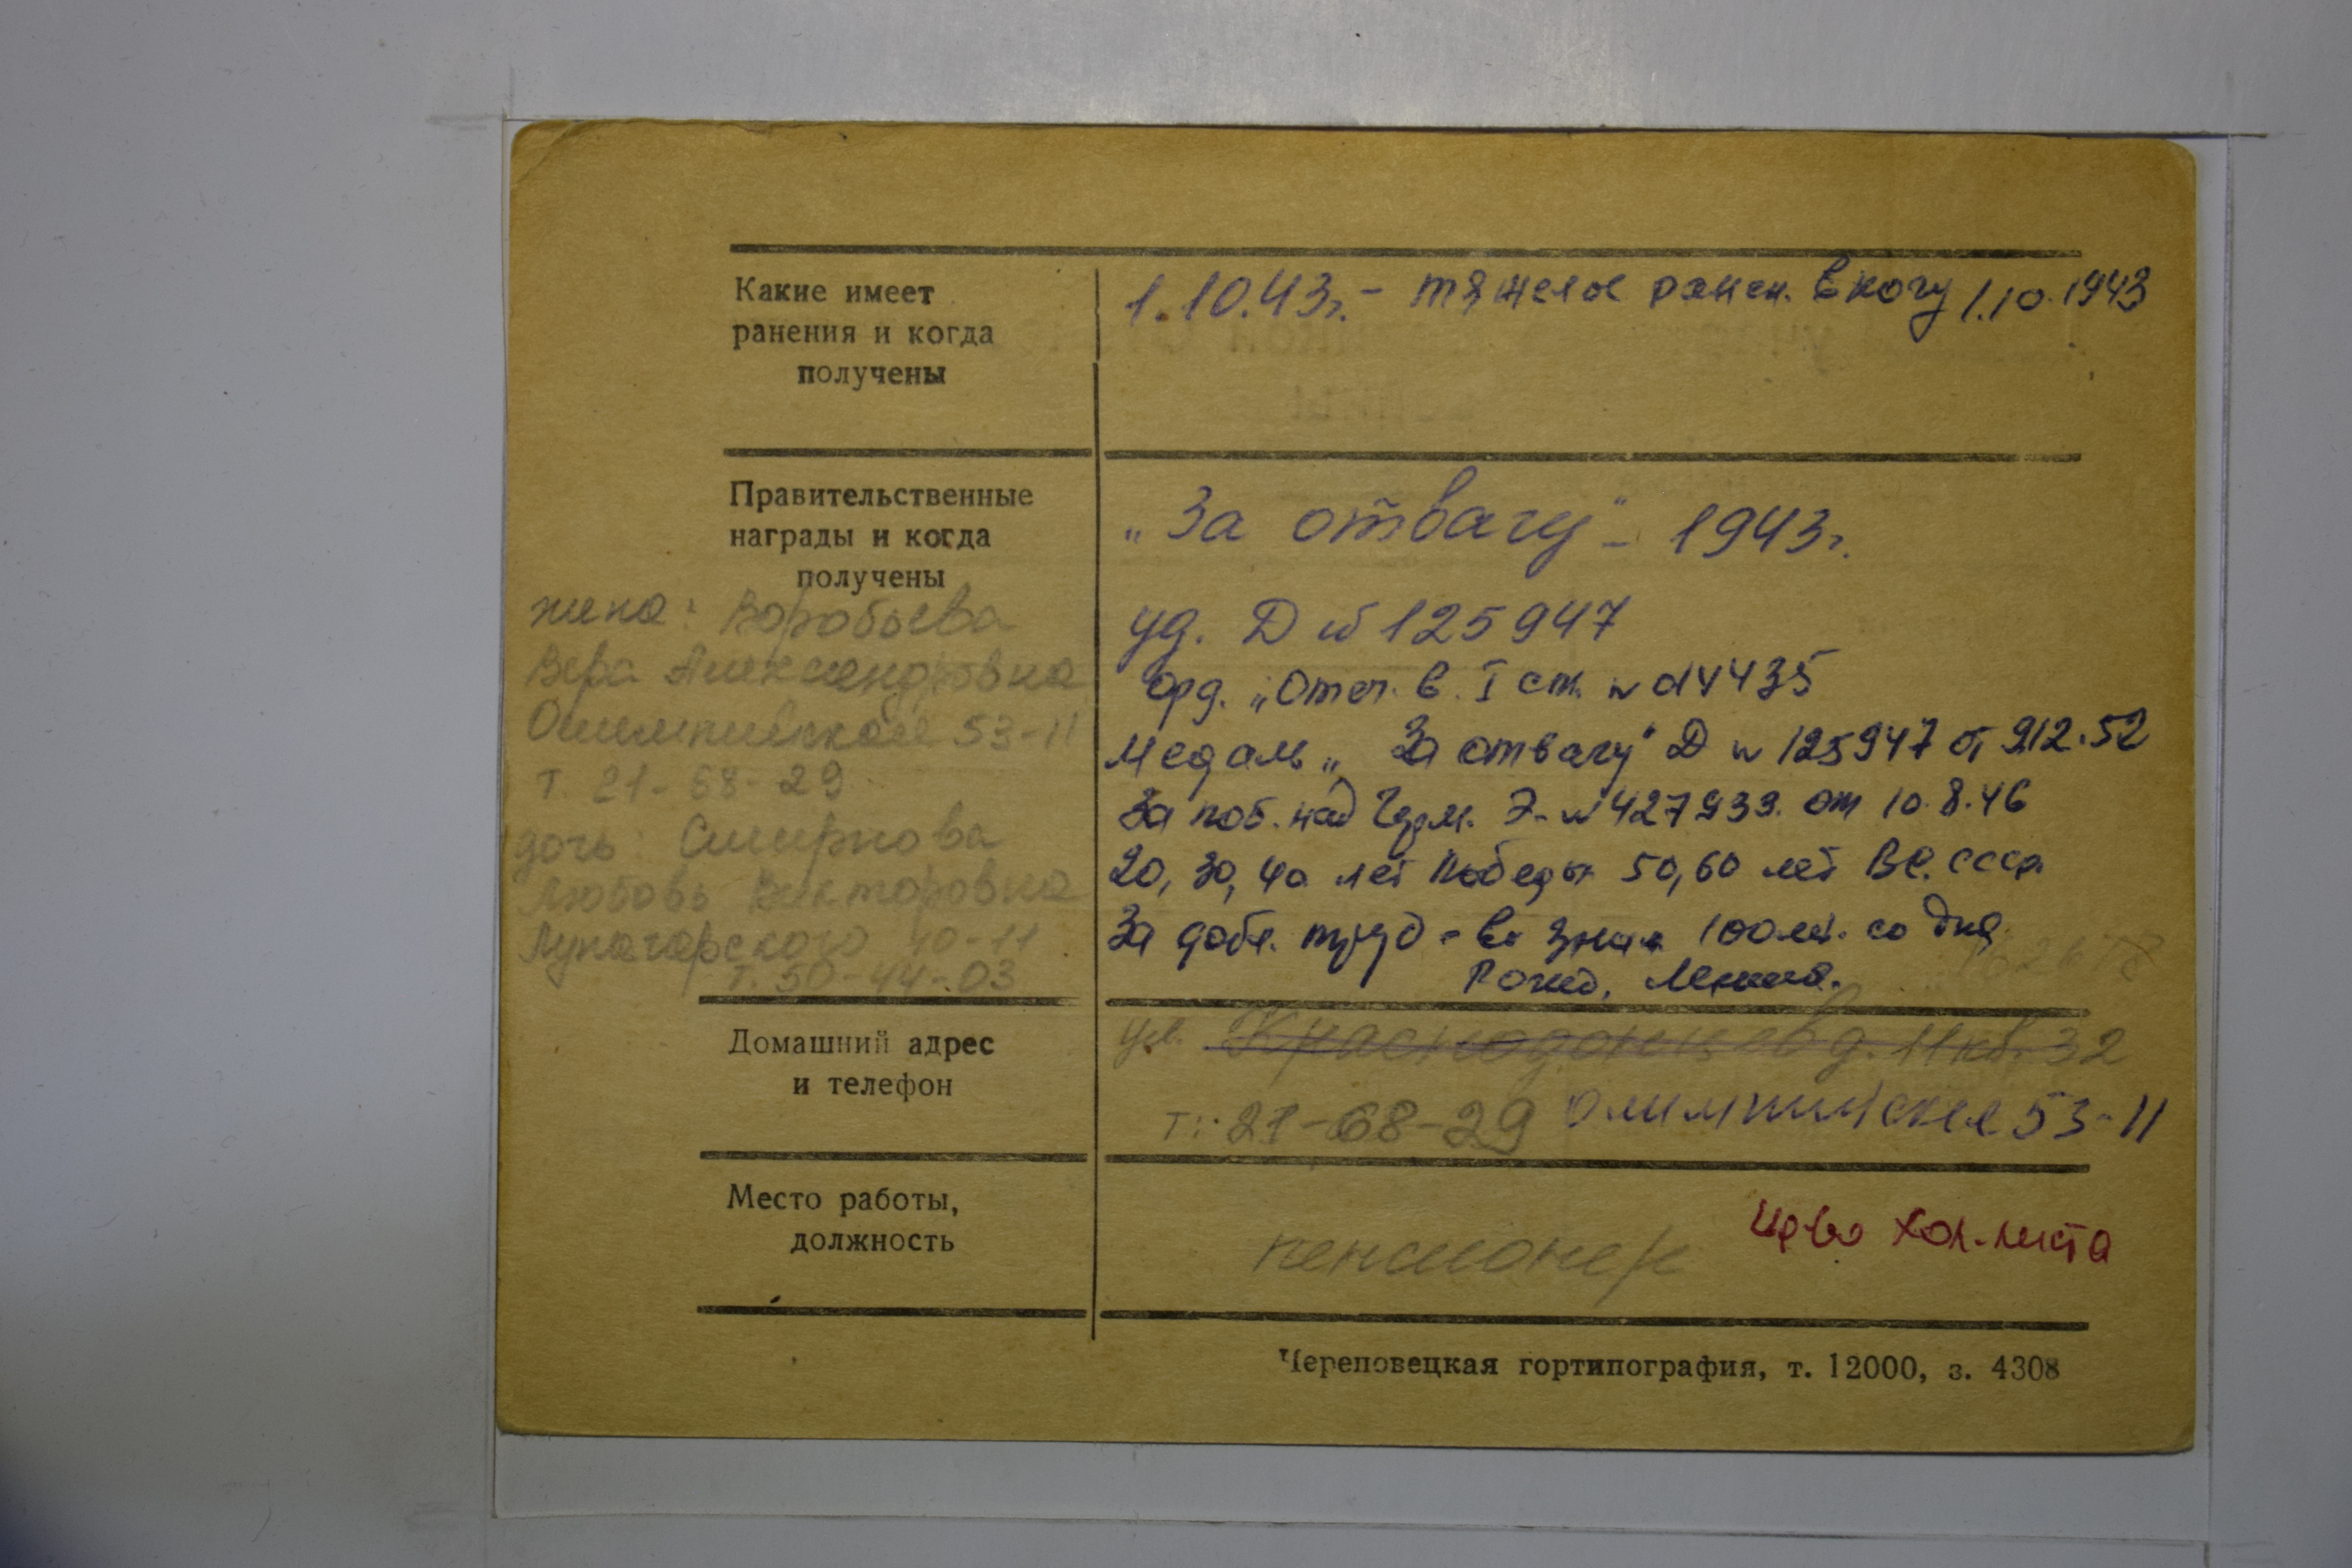 Какие имеет
ранения и когда
получены
1.10.43г. - тяжелое ранен. в ногу 1.10.1943
Правительственные
награды и когда
получены
„За отвагу" - 1943г.
уд. Д № 125947
орд. „Отеч. в. I ст. №
Медаль „За отвагу" Д № 125947 от 9.12.52
За поб. над Герм. Э-№ 427933. от 10.8.46
20, 30, 40 лет Победы 50, 60 лет ВС. СССР.
За добл. труд - в 100 лет. со дня
Рожд. Ленина.
жена: Воробьева
Вера Александровна
Олимпийская 53-11
т. 21-68-29
дочь: Смирнова
Любовь Викторовна
Луначарского 40-11
т. 50-44-03
Домашний адрес
и телефон
ул. Краснодонцев д. 11 кв. 32
т.: 21-68-29 Олимпийская 53-11
Место работы,
должность
пенсионер
Череповецкая гортипография, т. 12000, з. 4308